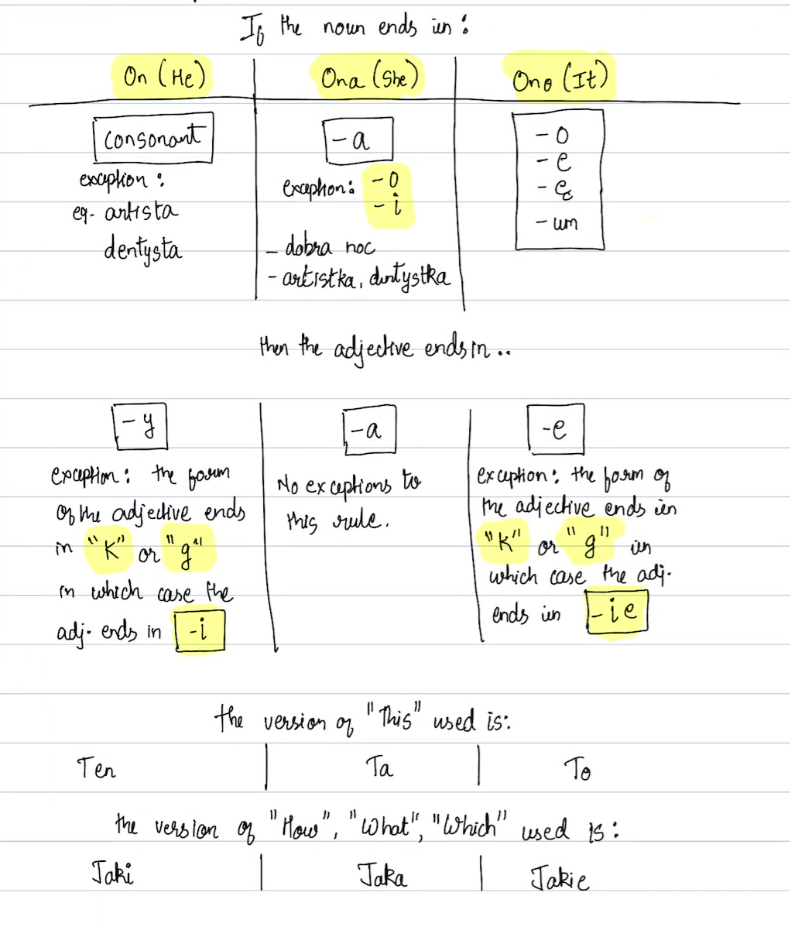 If the noun ends in:
On (He) Ona (She) Ono (It)
consonant
exception:
eg. artista
dentysta
-a
exception: -o
-i
- dobra noc
- artistka, dentystka
-o
-e
-ę
-um
then the adjective ends in..
-y
exception: the form
of the adjective ends
in "K" or "g"
in which case the
adj. ends in -i
-a
No exceptions to
this rule.
-e
exception: the form of
the adjective ends in
"K" or "g" in
which case the adj.
ends in -ie
the version of "This" used is:
Ten Ta To
the version of "How", "What", "Which" used is:
Jaki Jaka Jakie